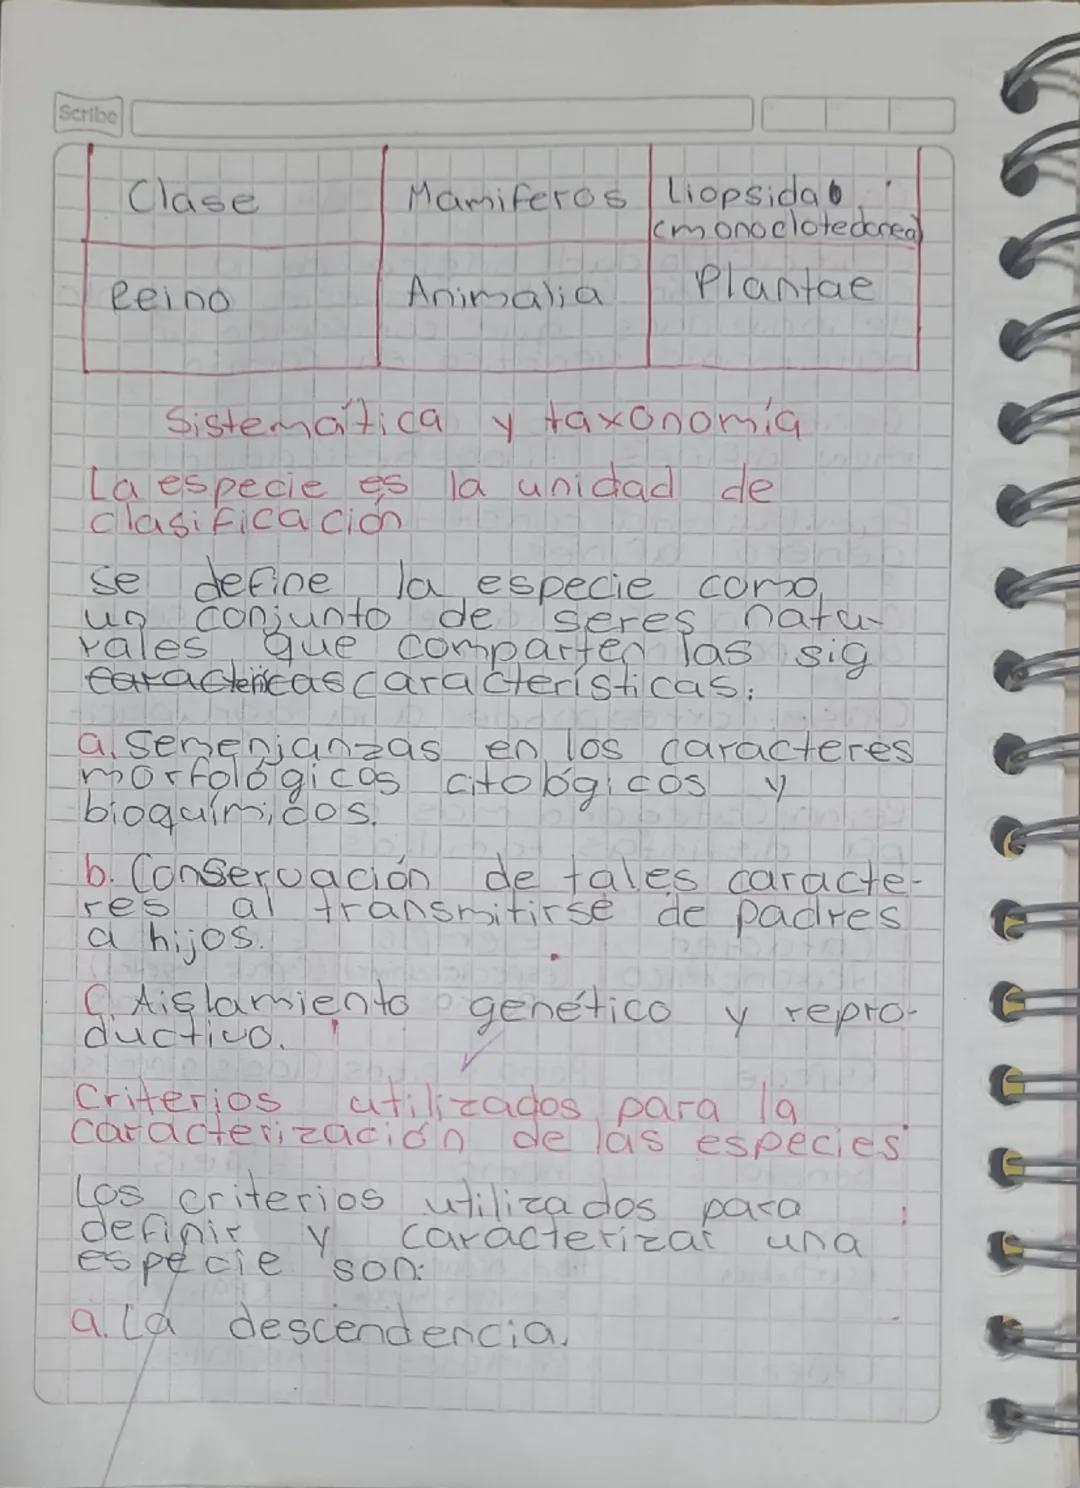 Scribe
Clase Mamiferos Liopsidab
(monoclotedorea)
Reino Animalia Plantae
Sistemática y taxonomía
La especie es la unidad de
clasificación
se define la especie como
un conjunto de seres natu-
rales que comparten las sig
caractericas características:
a. Semenjanzas en los caracteres
morfológicos citológicos y
bioquímicos.
b. Conservación de tales caracte-
res al transmitirse de padres
a hijos.
C. Aislamiento genético y repro-
ductivo.
Criterios utilizados para la
caracterización de las especies
Los criterios utilizados para
definir y caracterizar una
especie son:
a. La descendencia.